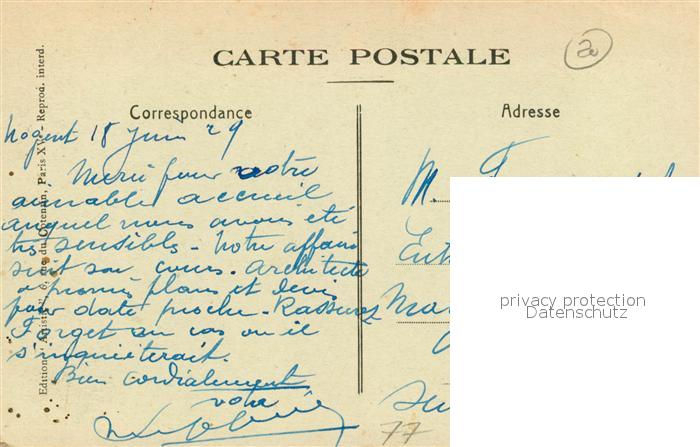 CARTE POSTALE
20
Correspondance
Adresse
Editions "Artistic", rue du Cotentin, Paris XV - Reprod. interd.
Nogent 18 Juin 29
Merci pour votre
aimable accueil
auquel nous avons été
très sensibles - Notre affaire
suit son cours. Architecte
a promis plans et devis
pour date proche. Rassurez
Forget au cas où il
s'inquiéterait.
Bien cordialement
votre
M.
Ent
Mar
77
privacy protection
Datenschutz